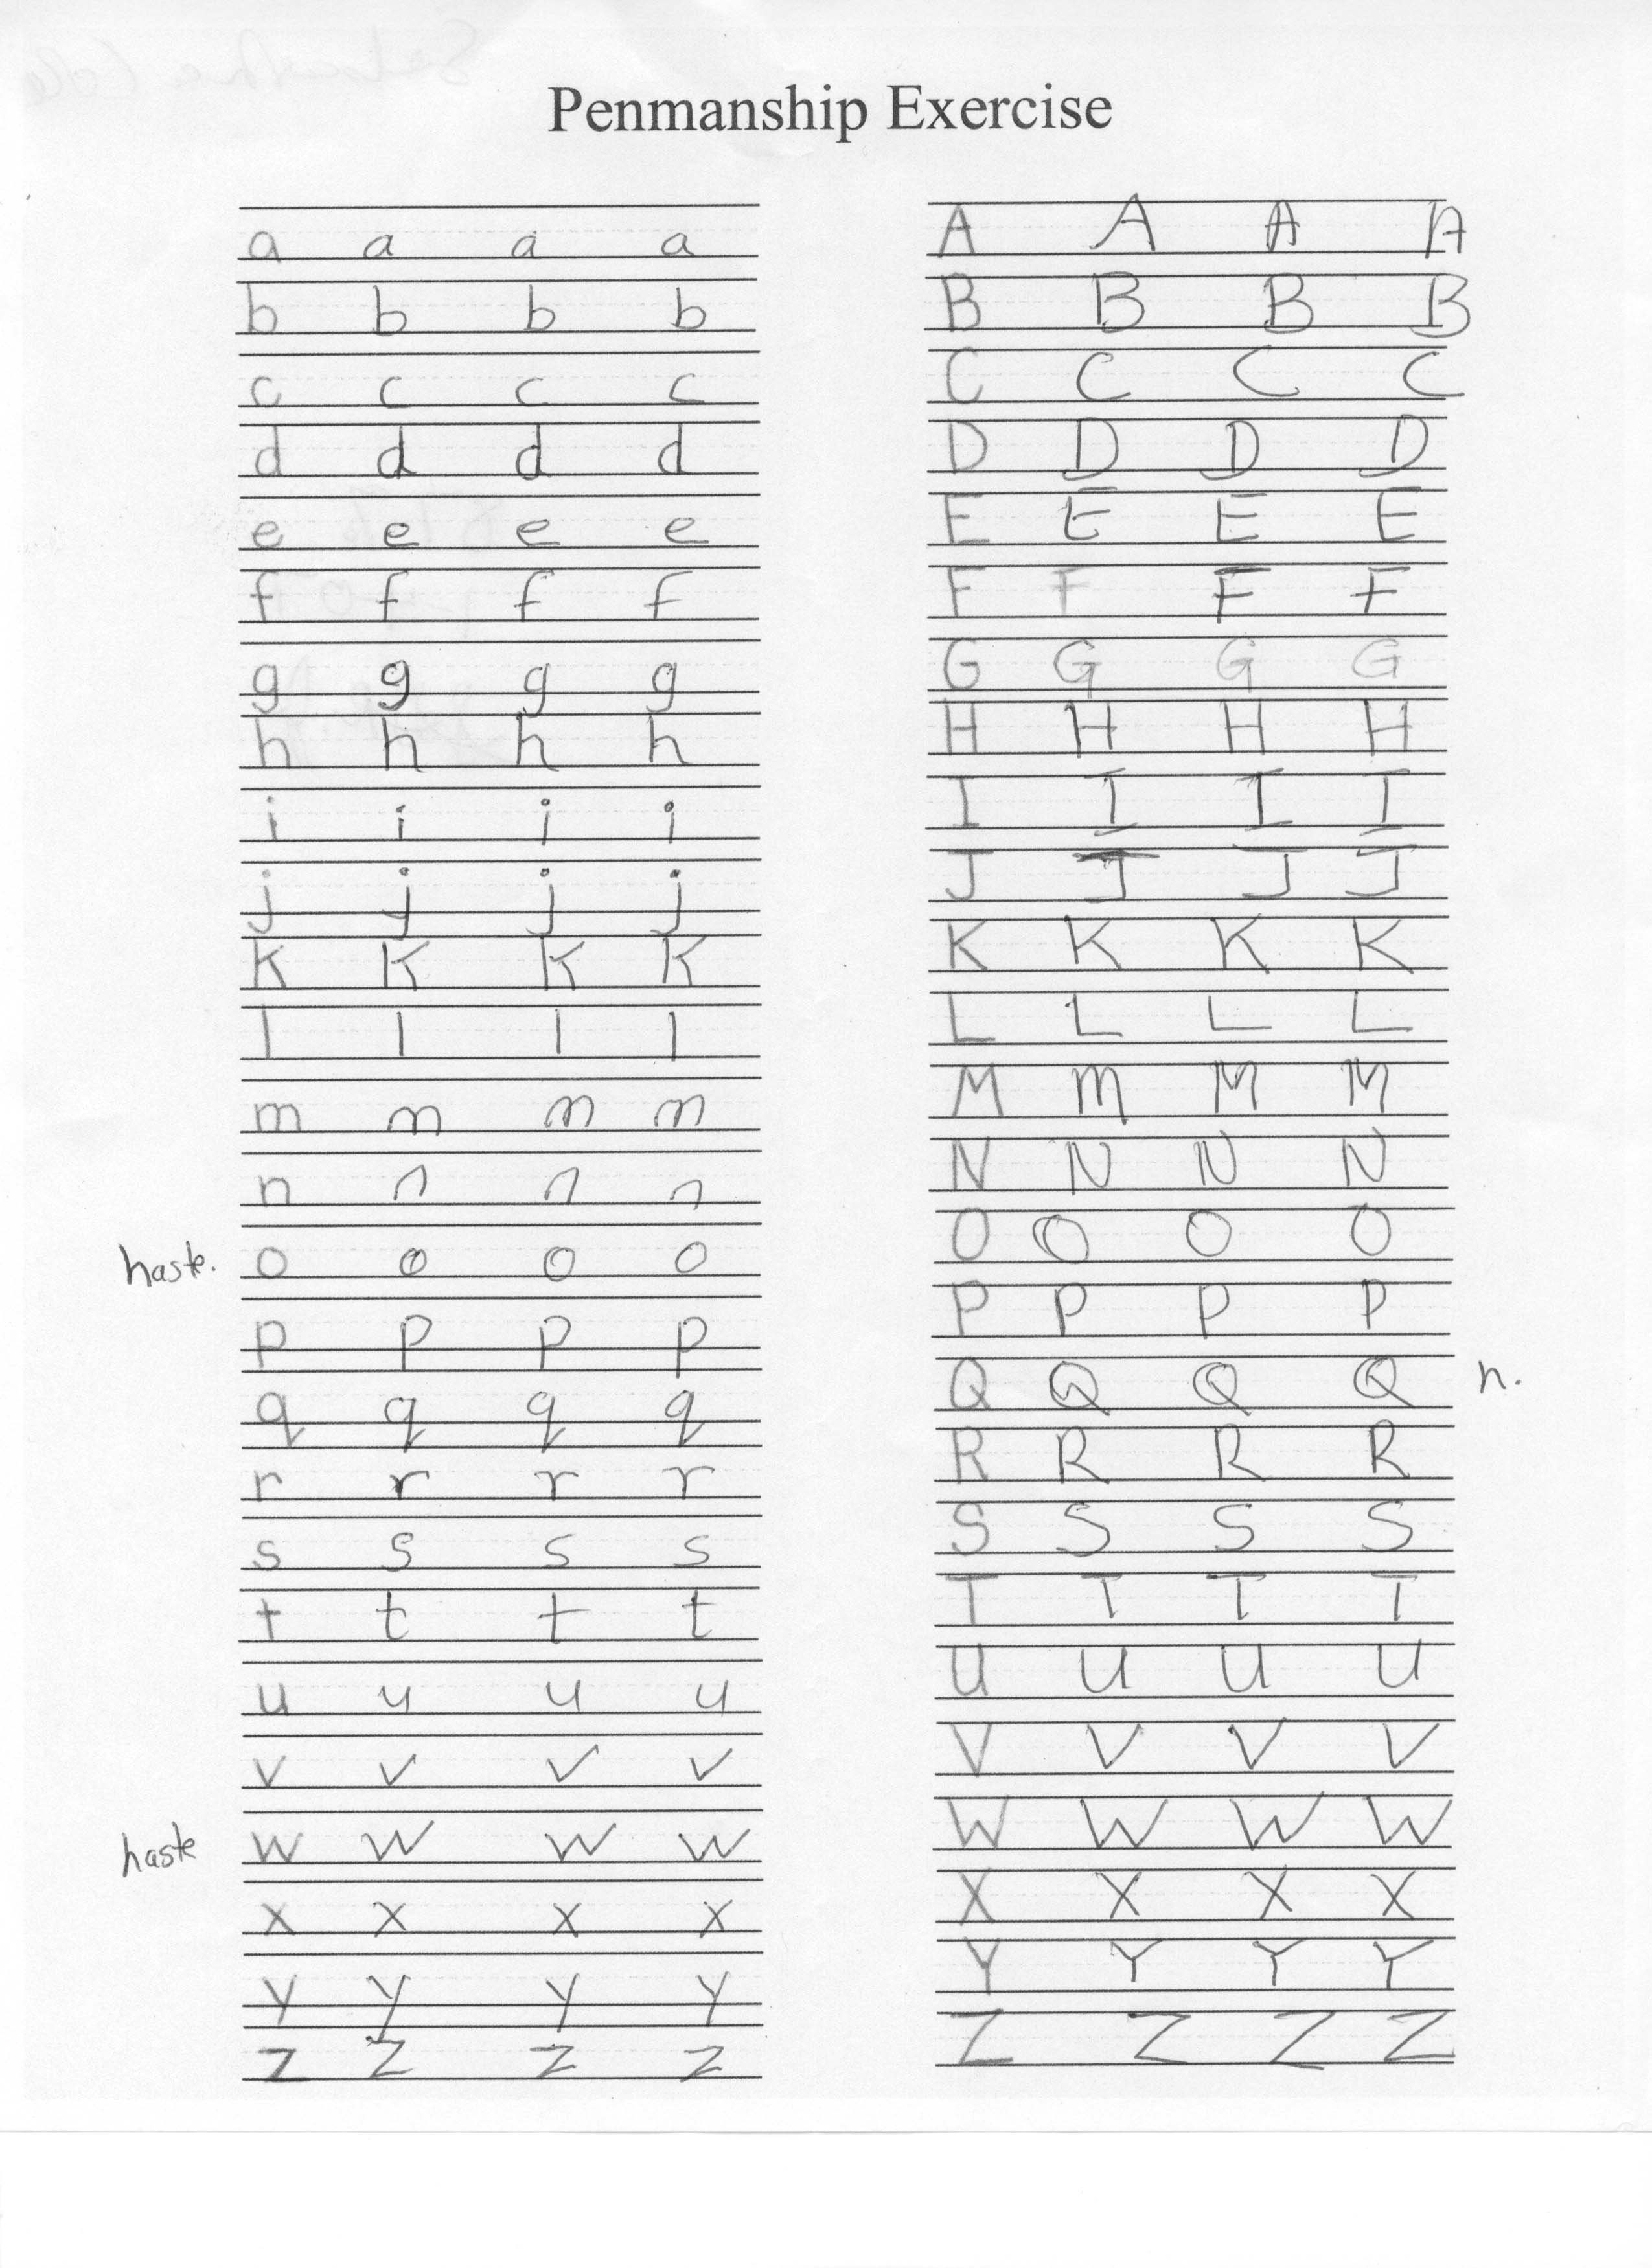 Penmanship Exercise
a a a a
b b b b
c c c c
d d d d
e e e e
f f f f
g g g g
h h h h
i i i i
j j j j
k k k k
l l l l
m m m m
n n n n
haste. o o o o
p p p p
q q q q
r r r r
s s s s
t t t t
u u u u
v v v v
haste w w w w
x x x x
y y y y
z z z z
A A A A
B B B B
C C C C
D D D D
E E E E
F F F F
G G G G
H H H H
I I I I
J J J J
K K K K
L L L L
M M M M
N N N N
O O O O
P P P P
Q Q Q Q h.
R R R R
S S S S
T T T T
U U U U
V V V V
W W W W
X X X X
Y Y Y Y
Z Z Z Z